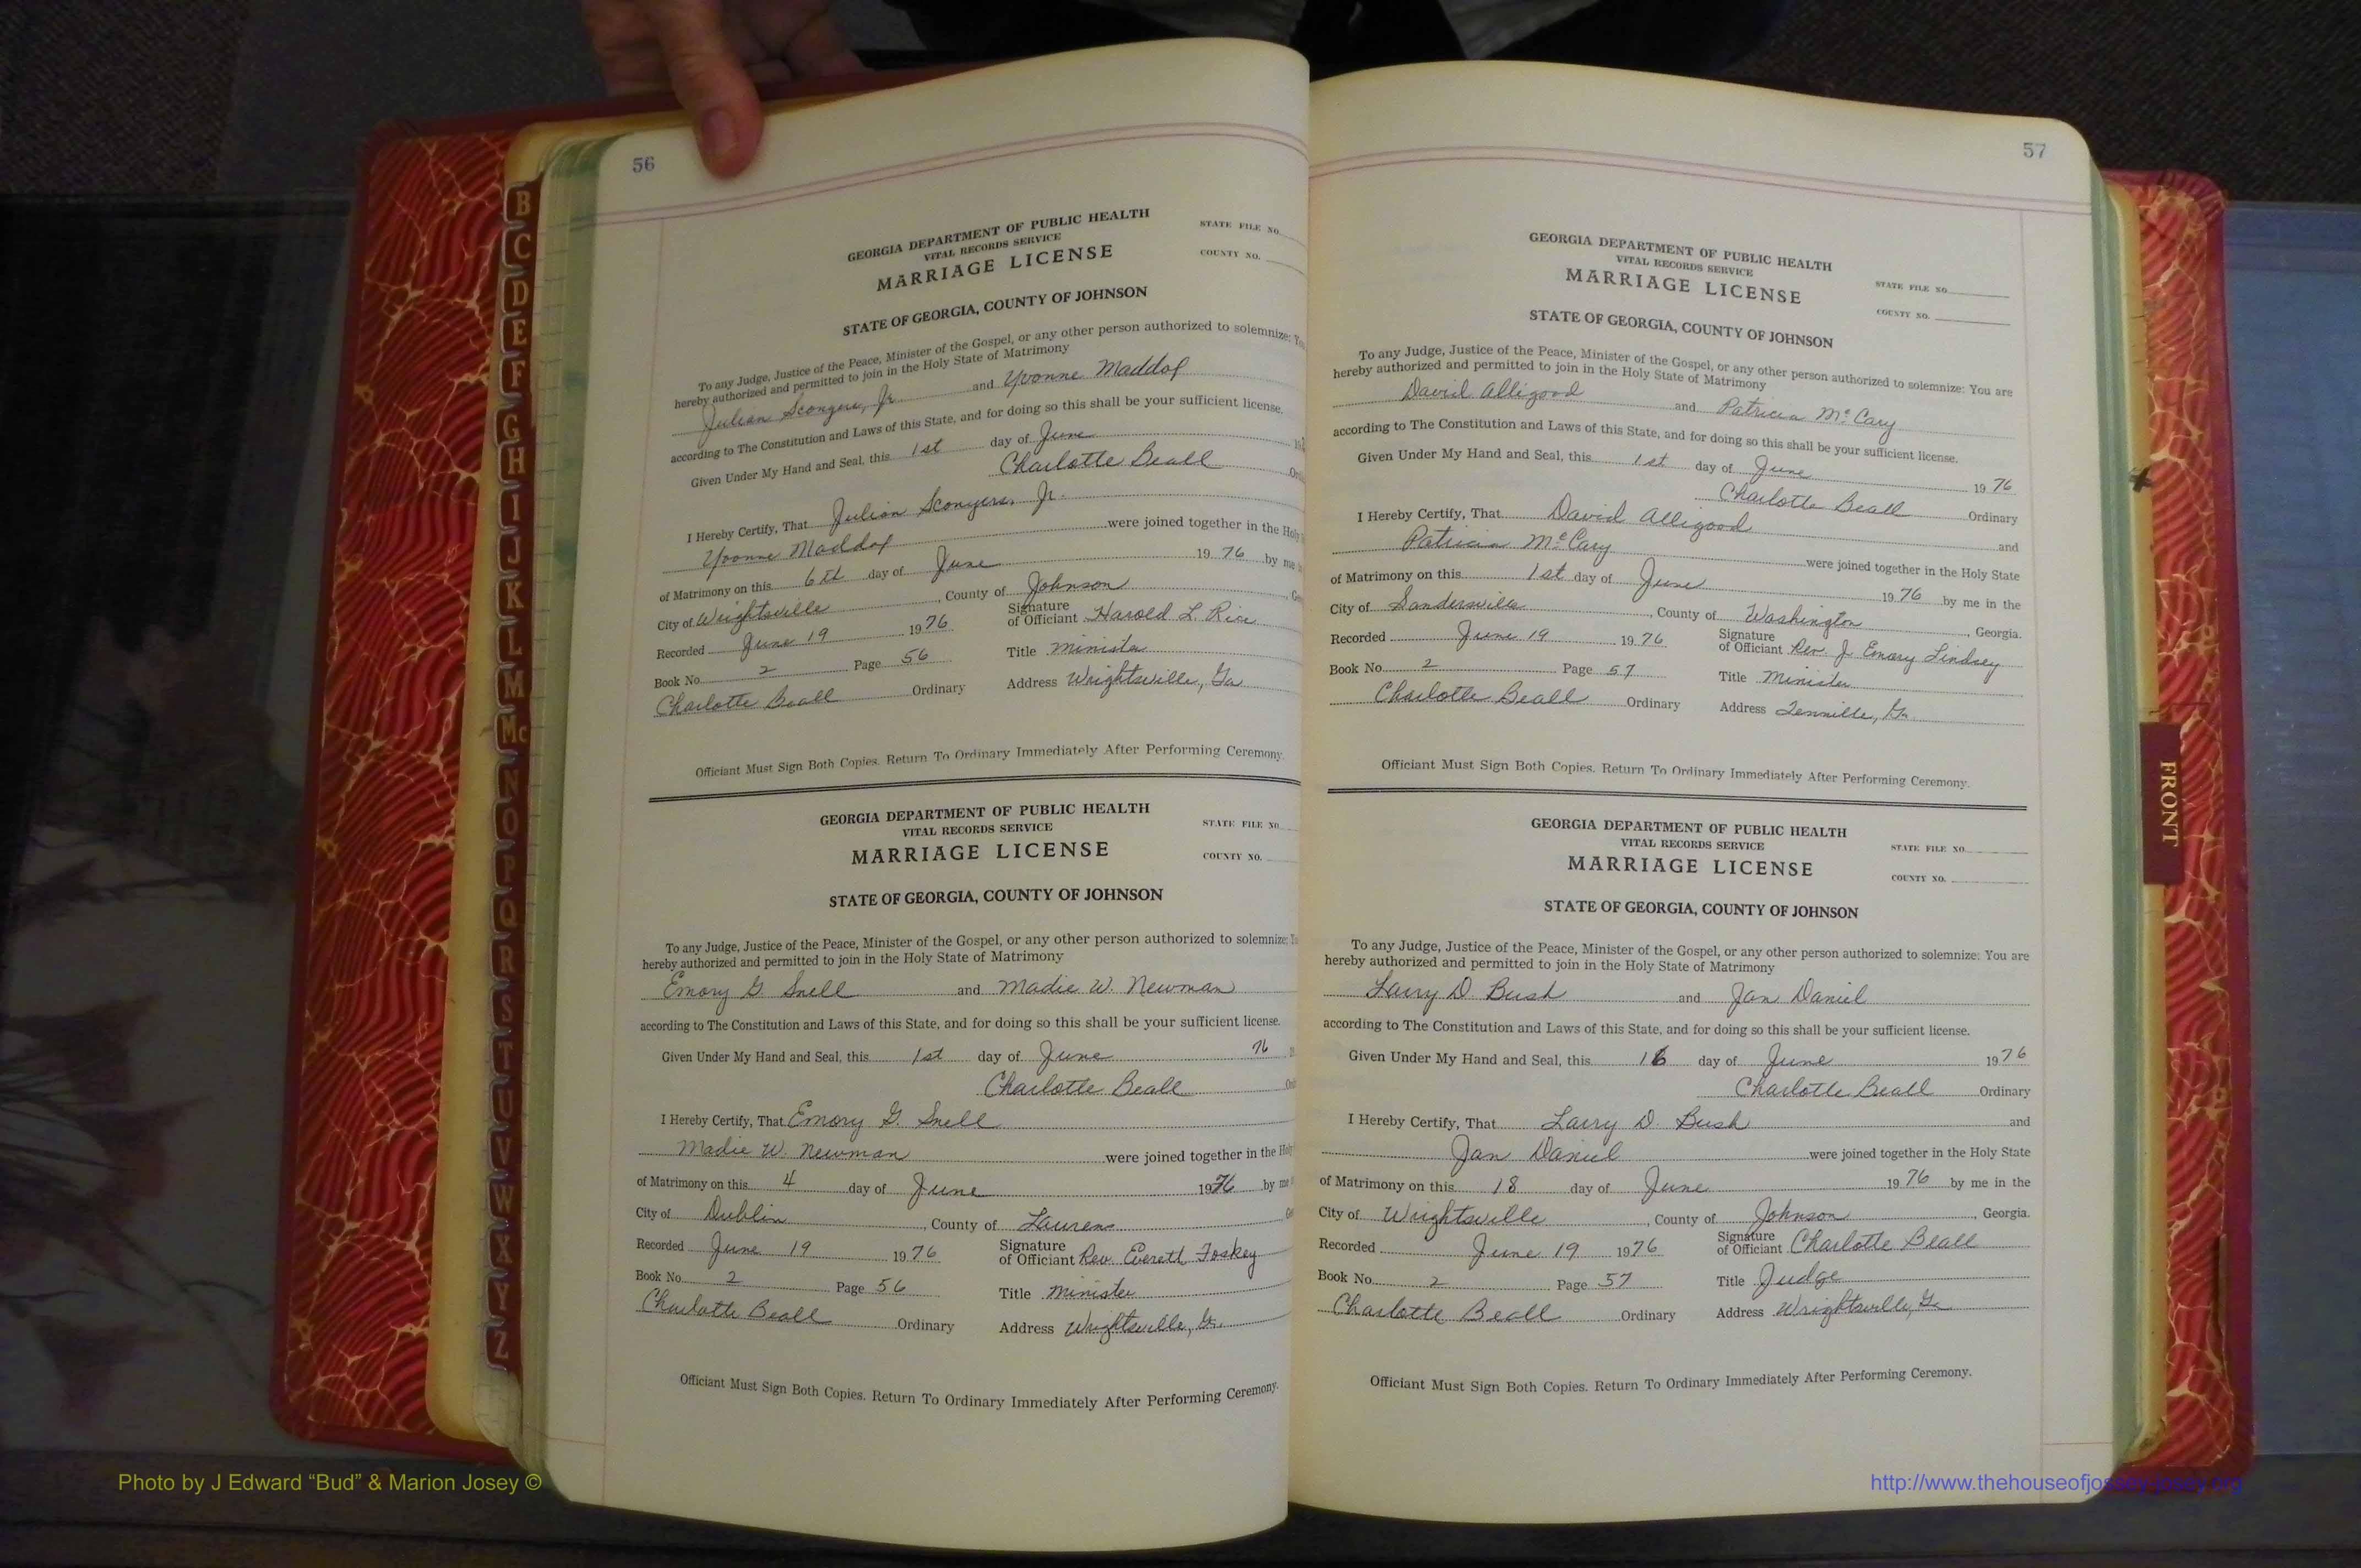 56
GEORGIA DEPARTMENT OF PUBLIC HEALTH
VITAL RECORDS SERVICE
MARRIAGE LICENSE
STATE FILE NO.
COUNTY NO.
STATE OF GEORGIA, COUNTY OF JOHNSON
To any Judge, Justice of the Peace, Minister of the Gospel, or any other person authorized to solemnize:
hereby authorized and permitted to join in the Holy State of Matrimony
Julian Sconyers, Jr. and Yvonne Maddox
according to The Constitution and Laws of this State, and for doing so this shall be your sufficient license.
Given Under My Hand and Seal, this 1st day of June
Charlotte Beall
I Hereby Certify, That Julian Sconyers, Jr.
Yvonne Maddox were joined together in the Holy
of Matrimony on this 6th day of June 1976 by me
City of Wrightsville, County of Johnson
Recorded June 19 1976 Signature of Officiant Harold L. Rice
Book No. 2 Page 56 Title Minister
Charlotte Beall Ordinary Address Wrightsville, Ga
Officiant Must Sign Both Copies. Return To Ordinary Immediately After Performing Ceremony.
GEORGIA DEPARTMENT OF PUBLIC HEALTH
VITAL RECORDS SERVICE
MARRIAGE LICENSE
STATE FILE NO.
COUNTY NO.
STATE OF GEORGIA, COUNTY OF JOHNSON
To any Judge, Justice of the Peace, Minister of the Gospel, or any other person authorized to solemnize:
hereby authorized and permitted to join in the Holy State of Matrimony
Emory G. Snell and Madie W. Newman
according to The Constitution and Laws of this State, and for doing so this shall be your sufficient license.
Given Under My Hand and Seal, this 1st day of June 76
Charlotte Beall
I Hereby Certify, That Emory G. Snell
Madie W. Newman were joined together in the Holy
of Matrimony on this 4 day of June 1976 by me
City of Dublin, County of Laurens
Recorded June 19 1976 Signature of Officiant Rev. Everett Foskey
Book No. 2 Page 56 Title Minister
Charlotte Beall Ordinary Address Wrightsville, Ga.
Officiant Must Sign Both Copies. Return To Ordinary Immediately After Performing Ceremony.
57
GEORGIA DEPARTMENT OF PUBLIC HEALTH
VITAL RECORDS SERVICE
MARRIAGE LICENSE
STATE FILE NO.
COUNTY NO.
STATE OF GEORGIA, COUNTY OF JOHNSON
To any Judge, Justice of the Peace, Minister of the Gospel, or any other person authorized to solemnize: You are
hereby authorized and permitted to join in the Holy State of Matrimony
David Alligood and Patricia McCary
according to The Constitution and Laws of this State, and for doing so this shall be your sufficient license.
Given Under My Hand and Seal, this 1st day of June 1976
Charlotte Beall Ordinary
I Hereby Certify, That David Alligood and
Patricia McCary were joined together in the Holy State
of Matrimony on this 1st day of June 1976 by me in the
City of Sandersville, County of Washington, Georgia.
Recorded June 19 1976 Signature of Officiant Rev. J. Emory Lindsey
Book No. 2 Page 57 Title Minister
Charlotte Beall Ordinary Address Tennille, Ga.
Officiant Must Sign Both Copies. Return To Ordinary Immediately After Performing Ceremony.
GEORGIA DEPARTMENT OF PUBLIC HEALTH
VITAL RECORDS SERVICE
MARRIAGE LICENSE
STATE FILE NO.
COUNTY NO.
STATE OF GEORGIA, COUNTY OF JOHNSON
To any Judge, Justice of the Peace, Minister of the Gospel, or any other person authorized to solemnize: You are
hereby authorized and permitted to join in the Holy State of Matrimony
Larry D. Bush and Jan Daniel
according to The Constitution and Laws of this State, and for doing so this shall be your sufficient license.
Given Under My Hand and Seal, this 16 day of June 1976
Charlotte Beall Ordinary
I Hereby Certify, That Larry D. Bush and
Jan Daniel were joined together in the Holy State
of Matrimony on this 18 day of June 1976 by me in the
City of Wrightsville, County of Johnson, Georgia.
Recorded June 19 1976 Signature of Officiant Charlotte Beall
Book No. 2 Page 57 Title Judge
Charlotte Beall Ordinary Address Wrightsville, Ga
Officiant Must Sign Both Copies. Return To Ordinary Immediately After Performing Ceremony.
B
C
D
E
F
G
H
I
J
K
L
M
Mc
N
O
P
Q
R
S
T
U
V
W
X
Y
Z
FRONT
Photo by J Edward “Bud” & Marion Josey ©
http://www.thehouseofjossey-josey.org